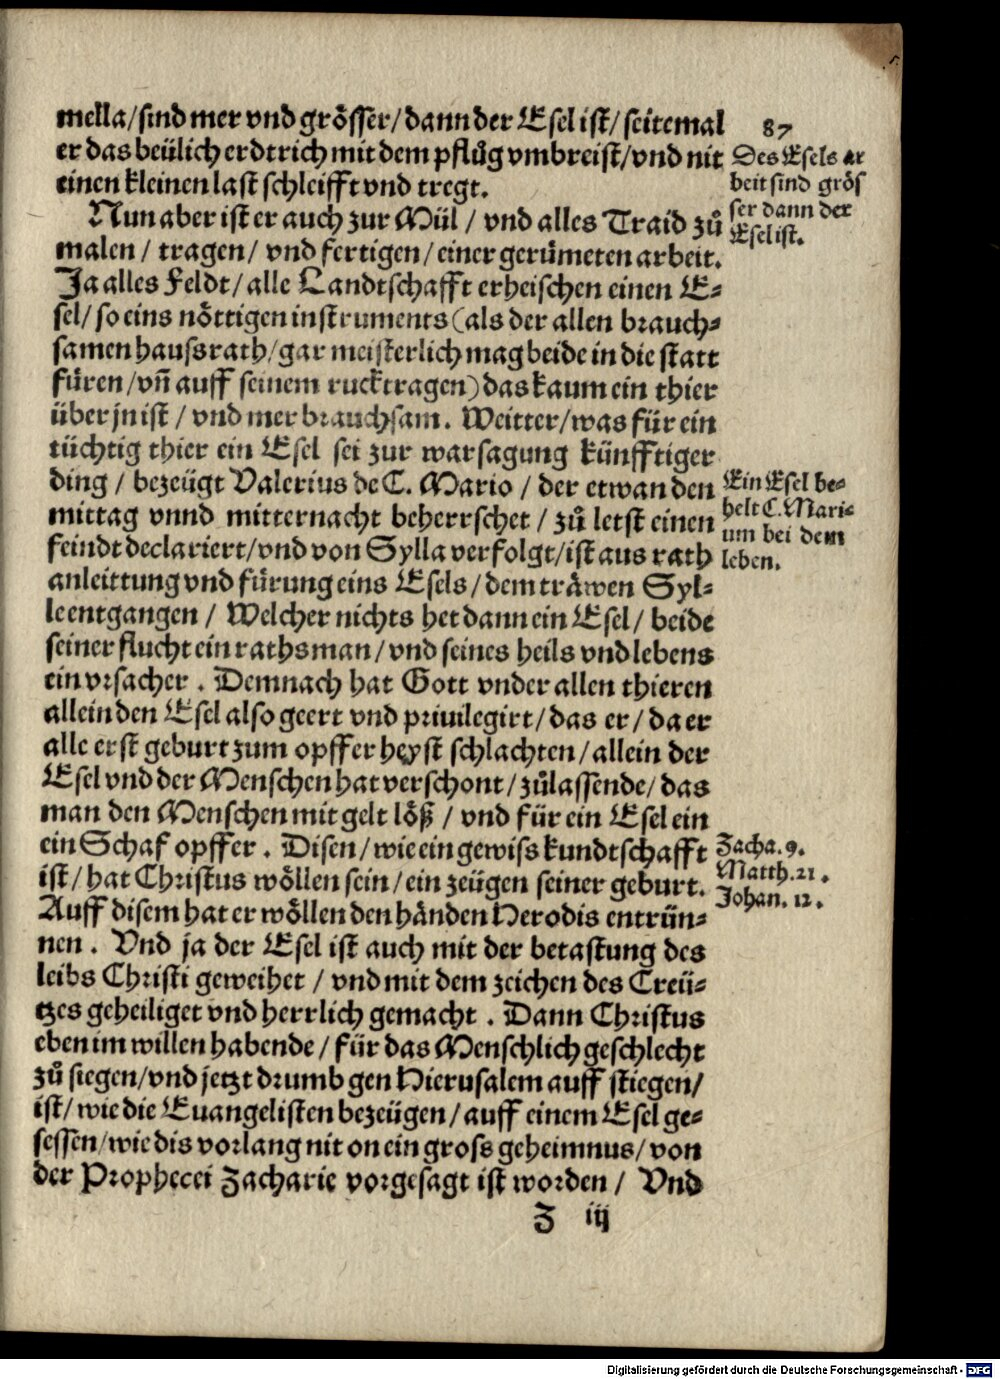 mella/sind mer vnd grösser/dann der Esel ist/seitemal
er das beülich erdtrich mit dem pflůg vmbreist/vnd nit
einen kleinen last schleifft vnd tregt.
Nun aber ist er auch zur Mül / vnd alles Traid zů
malen / tragen / vnd fertigen / einer gerümeten arbeit.
Ja alles Feldt/alle Landtschafft erheischen einen E-
sel/so eins nöttigen instruments (als der allen brauch-
samen haussrath/gar meisterlich mag beide in die statt
füren/vñ auff seinem ruck tragen) das kaum ein thier
über jn ist / vnd mer brauchsam. Weitter/was für ein
tüchtig thier ein Esel sei zur warsagung künfftiger
ding / bezeügt Valerius de C. Mario / der etwan den
mittag vnnd mitternacht beherrschet / zů letst einen
feindt declariert/vnd von Sylla verfolgt/ist aus rath
anleittung vnd fürung eins Esels/dem träwen Syl-
le entgangen / Welcher nichts het dann ein Esel/ beide
seiner flucht ein rathsman/vnd seines heils vnd lebens
ein vrsacher . Demnach hat Gott vnder allen thieren
allein den Esel also geert vnd priuilegirt/das er/da er
alle erst geburt zum opffer heyst schlachten/allein der
Esel vnd der Menschen hat verschont/zůlassende/das
man den Menschen mit gelt löß / vnd für ein Esel ein
ein Schaf opffer . Disen/wie ein gewiss kundtschafft
ist/hat Christus wöllen sein/ein zeügen seiner geburt.
Auff disem hat er wöllen den händen Herodis entrün-
nen . Vnd ja der Esel ist auch mit der betastung des
leibs Christi geweihet / vnd mit dem zeichen des Creü-
tzes geheiliget vnd herrlich gemacht . Dann Christus
eben im willen habende/für das Menschlich geschlecht
zů siegen/vnd jetzt drumb gen Hierusalem auff stiegen/
ist/wie die Euangelisten bezeügen/auff einem Esel ge-
sessen/wie dis vorlang nit on ein gross geheimnus/von
der Prophecei Zacharie vorgesagt ist worden / Vnd
Z iij
87
Des Esels ar
beit sind grös
ser dann der
Esel ist.
Ein Esel be-
helt C. Mari-
um bei dem
leben.
Zacha. 9.
Matth. 21.
Johan. 12.
Digitalisierung gefördert durch die Deutsche Forschungsgemeinschaft - DFG